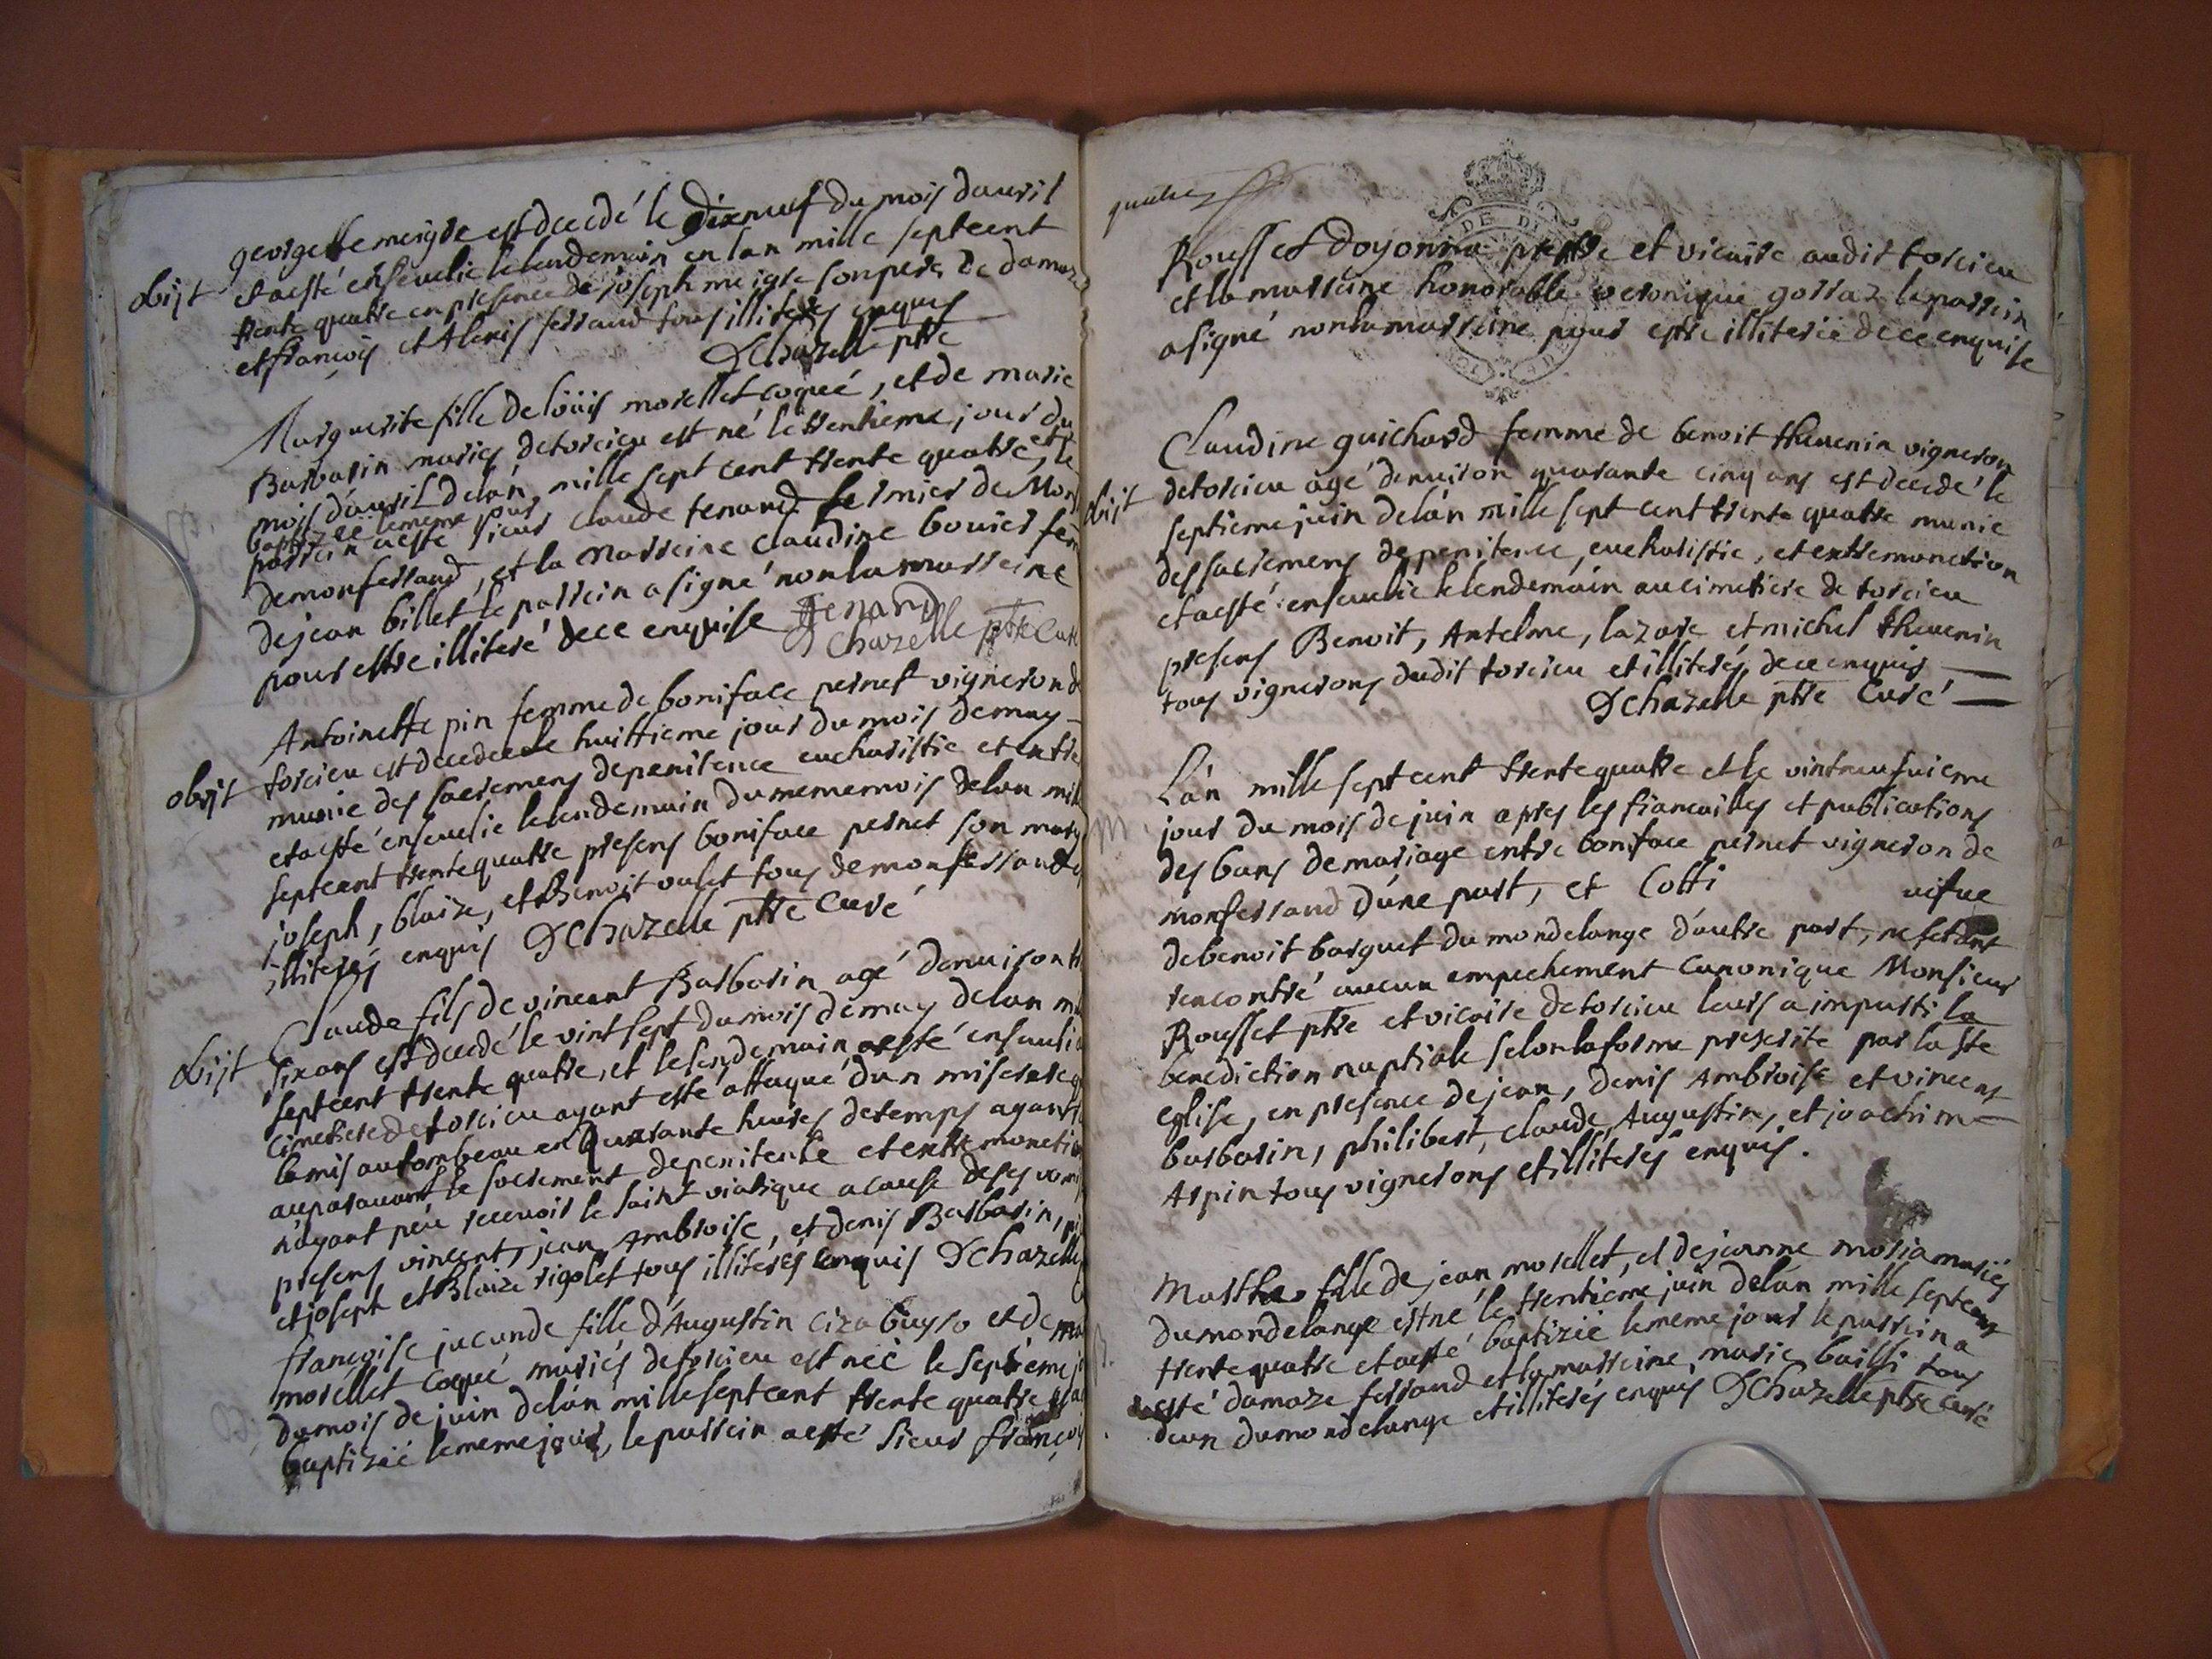 georgette meigre est decedé le dixneuf du mois dauril
obijt
et a esté enseuelie le lendemain en lan mille septcent
trente quattre en presence de joseph meigre son pere, de damaz
et françois et Alexis ferrand tous illiterés enquis
DChazelle ptre
Marguerite fille de loüis morellet coqué, et de marie
Barbarin mariés de torcieu est né le trentieme jour du
mois d'auril de lán mille sept cent trente quattre, et a
baptizée le meme jour le
parrein a esté sieur Claude tenand fermier de Mons
de monferrand, et la Marreine Claudine bouier fem
de jean billet le parrein a signé non la marreine
pour estre illiteré de ce enquise Tenand
DChazelle ptre Curé
Antoinette pin femme de boniface pernet vigneron d
obijt
torcieu est decedee le huittieme jour du mois de may
munie des sacremens de penitence eucharistie et extre
et a esté enseuelie le lendemain du meme mois de lan mill
septcent trente quattre presens boniface pernet son mary
joseph, blaise, et Benoit oulet tous de monferrand
illiterés enquis DChazelle ptre Curé
Claude fils de vincent Barbarin agé denuiron tr
obijt
six ans est decedé le vint sept du mois de may de lan mi
septcent trente quattre, et le lendemain a esté enseueli a
cimetiere de torcieu ayant esté attaqué dun miserere q
la mis au tombeau en Quarante heures de temps ayant
auparauant le sacrement de penitence et extremonction
n'ayant peu receuoir le saint viatique a cause de ses vomi
presens vincent, jean, Ambroise, et denis Barbarin, pi
et joseph et Blaize rigolet tous illiterés enquis DChazelle
françoise jucunde fille d'Augustin Cizabuyso et de ma
morellet coqué mariés de torcieu est née le septieme j
du mois de juin de lán mille septcent trente quattre et a
baptizié le meme jour, le parrein a esté sieur françois
quatre
Rousset doyonna prettre et vicaire audit torcieu
et la marreine honorable veronique gorraz le parrein
a signé non la marreine pour estre illiterée de ce enquise
Claudine guichard femme de benoit theuenin vigneron
obijt
de torcieu agé denuiron quarante cinq ans est decedé le
septieme juin de lán mille sept cent trente quattre munie
des sacremens de penitence, eucharistie, et extremonction
et a esté enseuelie le lendemain au cimetiere de torcieu
presens Benoit, Antelme, lazare et michel theuenin
tous vignerons dudit torcieu et illiterés, de ce enquis
DChazelle ptre Curé
Lán mille septcent trente quattre et le vintneufuieme
M
jour du mois de juin apres les fiancailles et publications
des bans de mariage entre boniface pernet vigneron de
monferrand d'une part, et Cotti veifue
de benoit barquet du mondelange d'autre part, ne setant
rencontré aucun empechement Canonique Monsieur
Rousset ptre et vicaire de torcieu leurs a imparti la
benediction nuptiale selon la forme prescrite par la ste
Eglise, en presence de jean, denis Ambroise et vincens
barbarin, philibert, claude, Augustin, et joachim
Arpin tous vignerons et illiterés enquis.
Marthe fille de jean morellet, et de jeanne moria mariés
du mondelange est né le trentieme juin de lán mille septcent
B.
trente quattre et a esté baptizié le meme jour le parrein a
esté damaze ferrand et la marreine, marie bailli tous
deux du mondelange et illiterés enquis DChazelle ptre curé